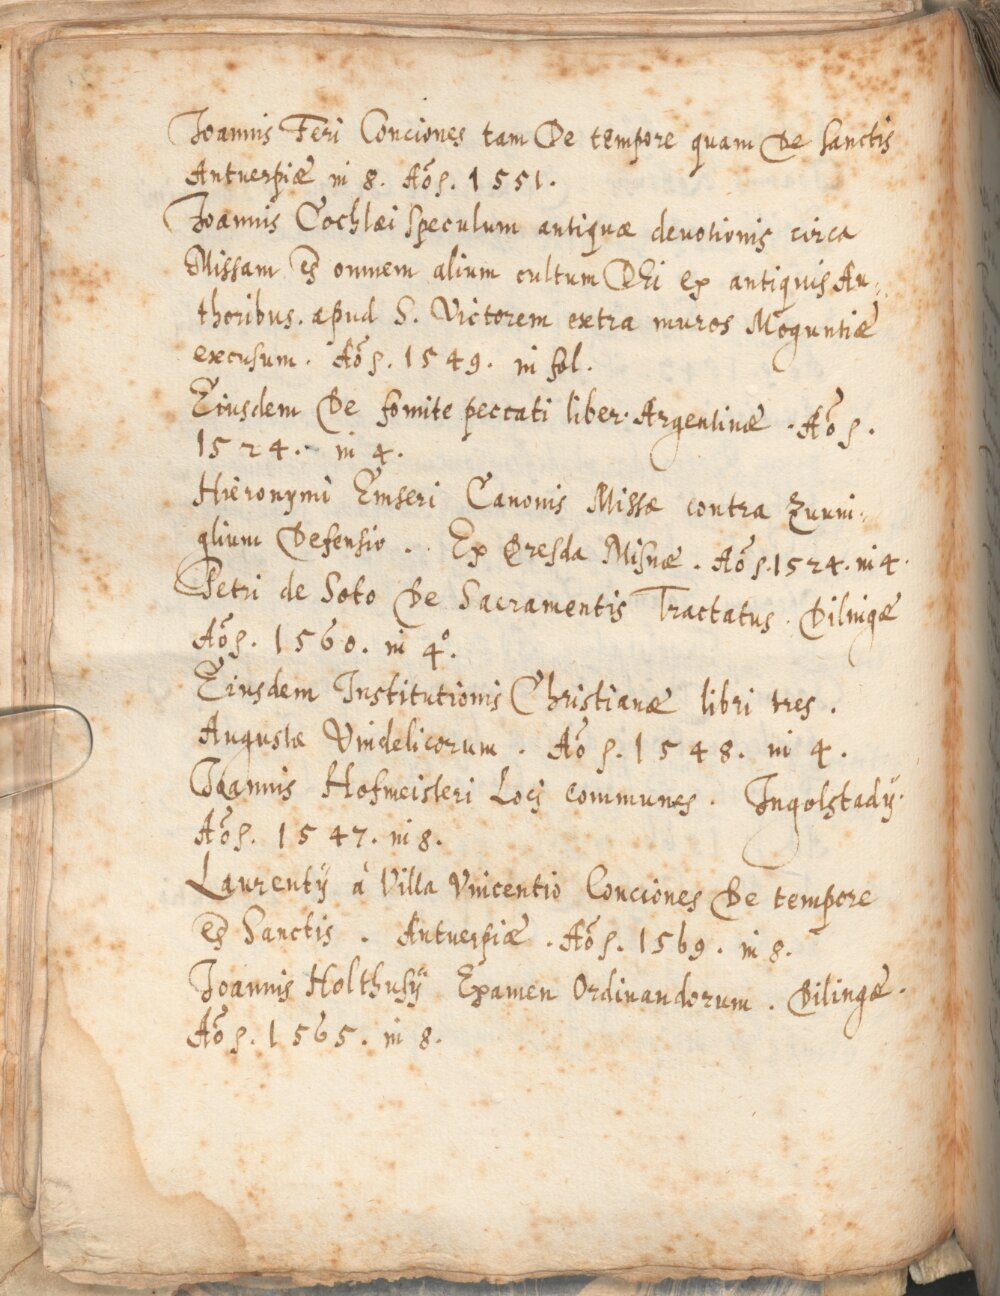 Joannis Feri Conciones tam De tempore quam De Sanctis
Antuerpiæ in 8. Aõ s. 1551.
Joannis Cochlæi Speculum antiquæ deuotionis circa
Missam et omnem alium cultum DEi ex antiquis Au-
thoribus. apud S. Victorem extra muros Moguntiæ
excusum. Aõ s. 1549. in fol.
Eiusdem De fomite peccati liber. Argentinæ. Aõ s.
1524. in 4.
Hieronymi Emseri Canonis Missæ contra Zuuin-
glium Defensio. Ex Dresda Misnæ. Aõ s. 1524. in 4.
Petri de Soto De Sacramentis Tractatus. Dilingæ
Aõ s. 1560. in 4°.
Eiusdem Institutionis Christianæ libri tres.
Augustæ Vindelicorum. Aõ s. 1548. in 4.
Joannis Hofmeisteri Locj communes. Ingolstadij.
Aõ s. 1547. in 8.
Laurentij à Villa Vnicentio Conciones De tempore
et Sanctis. Antuerpiæ. Aõ s. 1569. in 8.
Joannis Holthusij Examen Ordinandorum. Dilingæ.
Aõ s. 1565. in 8.